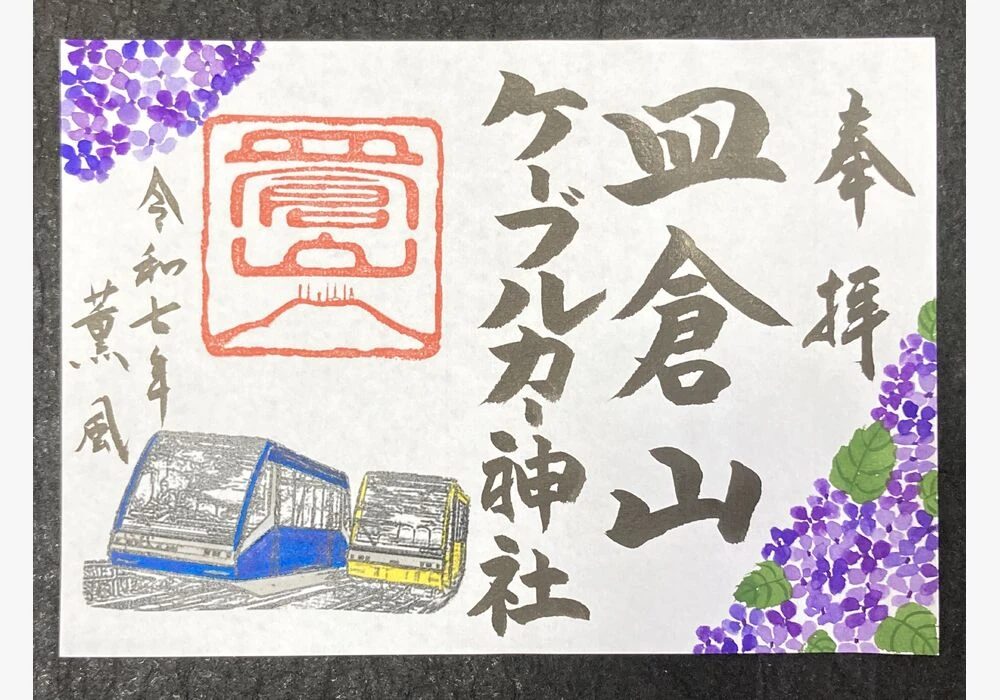 奉拝
皿倉山
ケーブルカー神社
令和七年
薫風